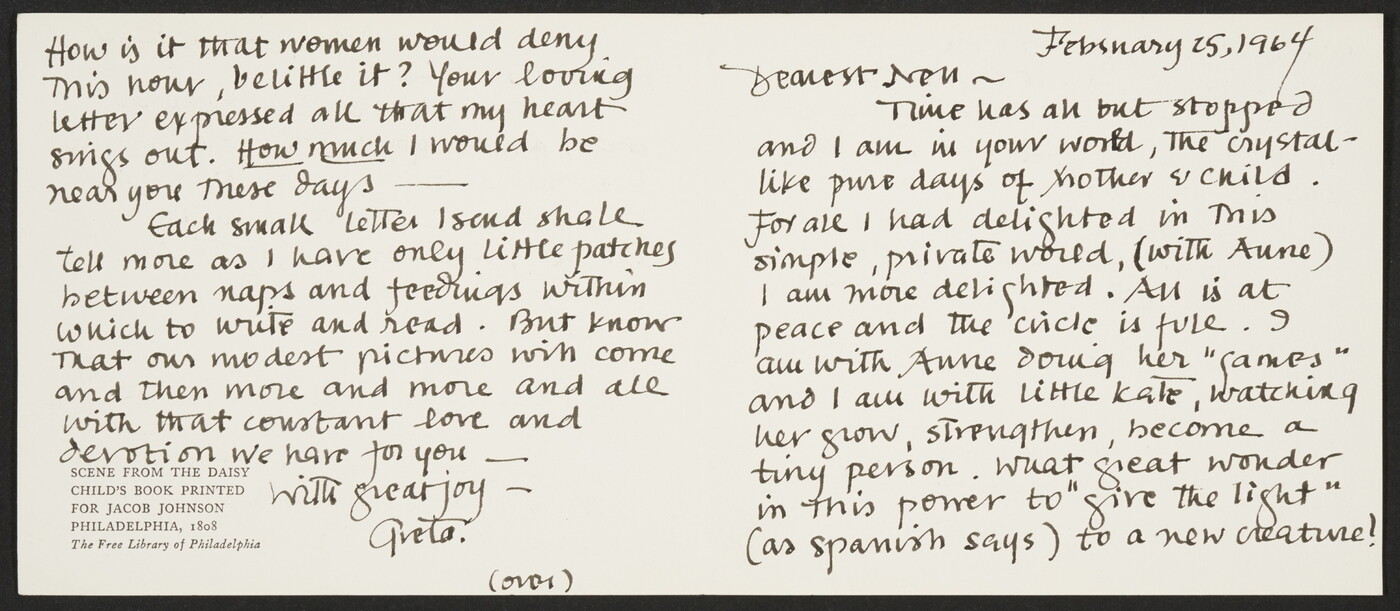 February 25, 1964
Dearest Nell ~
Time has all but stopped
and I am in your world, the crystal-
like pure days of Mother & Child.
For all I had delighted in this
simple, private world, (with Anne)
I am more delighted. All is at
peace and the circle is full. I
am with Anne doing her "games"
and I am with little Kate, watching
her grow, strengthen, become a
tiny person. What great wonder
in this power to "give the light"
(as spanish says) to a new creature!
How is it that women would deny
this hour, belittle it? Your loving
letter expressed all that my heart
sings out. How much I would be
near you these days —
Each small letter I send shall
tell more as I have only little patches
between naps and feedings within
which to write and read. But know
that our modest pictures will come
and then more and more and all
with that constant love and
devotion we have for you —
with great joy —
Greta.
SCENE FROM THE DAISY
CHILD'S BOOK PRINTED
FOR JACOB JOHNSON
PHILADELPHIA, 1808
The Free Library of Philadelphia
(over)